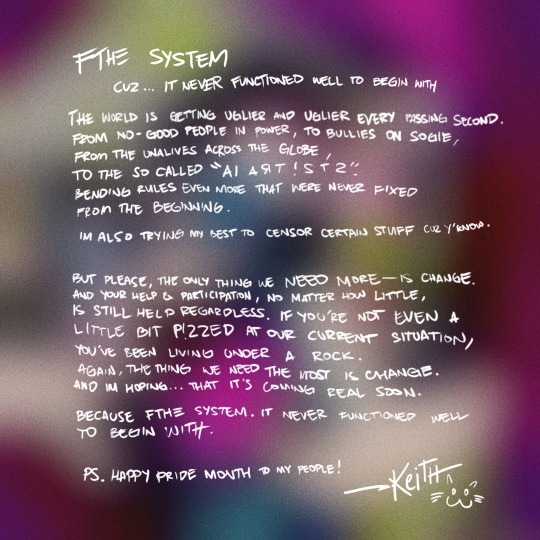 FTHE SYSTEM
CUZ... IT NEVER FUNCTIONED WELL TO BEGIN WITH
THE WORLD IS GETTING UGLIER AND UGLIER EVERY PASSING SECOND.
FROM NO-GOOD PEOPLE IN POWER, TO BULLIES ON SOGIE,
FROM THE UNALIVES ACROSS THE GLOBE,
TO THE SO CALLED "AI ART!STZ".
BENDING RULES EVEN MORE THAT WERE NEVER FIXED
FROM THE BEGINNING.
IM ALSO TRYING MY BEST TO CENSOR CERTAIN STUFF CUZ Y'KNOW.
BUT PLEASE, THE ONLY THING WE NEED MORE—IS CHANGE.
AND YOUR HELP & PARTICIPATION, NO MATTER HOW LITTLE,
IS STILL HELP REGARDLESS. IF YOU'RE NOT EVEN A
LITTLE BIT P!ZZED AT OUR CURRENT SITUATION,
YOU'VE BEEN LIVING UNDER A ROCK.
AGAIN, THE THING WE NEED THE MOST IS CHANGE.
AND IM HOPING... THAT IT'S COMING REAL SOON.
BECAUSE FTHE SYSTEM. IT NEVER FUNCTIONED WELL
TO BEGIN WITH.
PS. HAPPY PRIDE MONTH TO MY PEOPLE!
KEITH